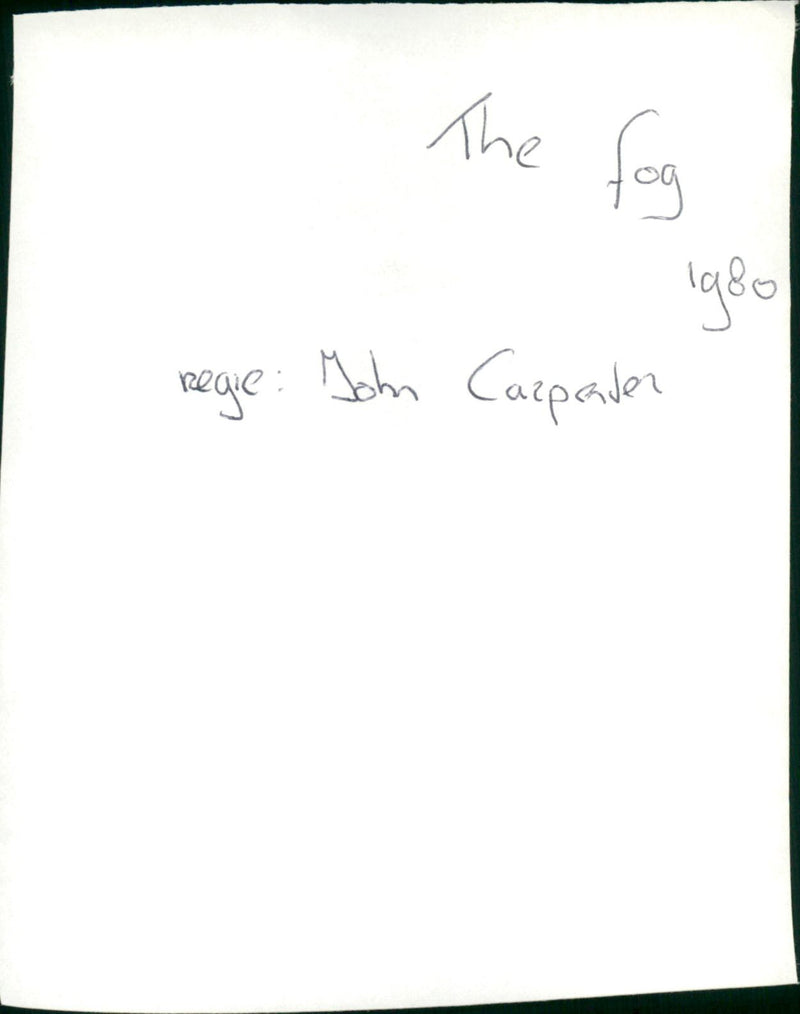 The fog
1980
regie: John Carpenter